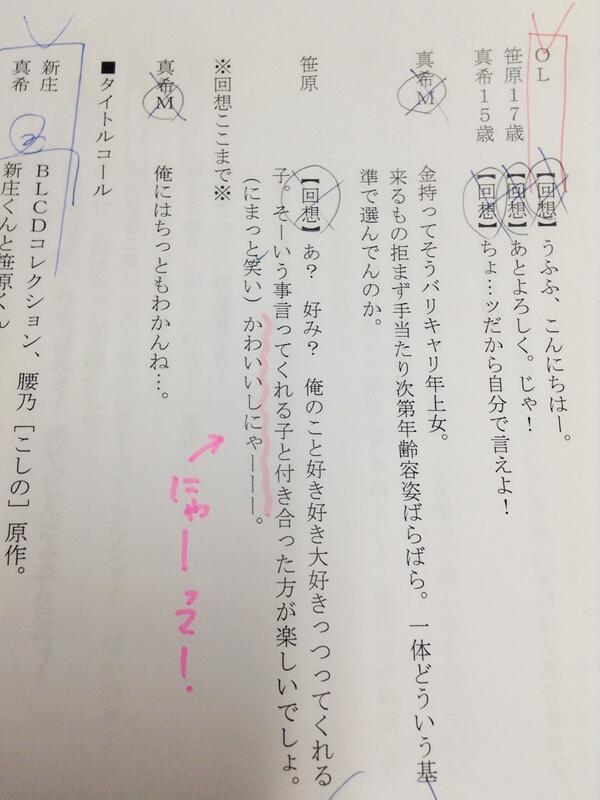 OL 【回想】うふふ、こんにちはー。
笹原17歳 【回想】あとよろしく。じゃ！
真希15歳 【回想】ちょ…ッだから自分で言えよ！
真希M 金持ってそうバリキャリ年上女。
来るもの拒まず手当たり次第年齢容姿ばらばら。一体どういう基
準で選んでんのか。
笹原 【回想】あ？ 好み？ 俺のこと好き好き大好きっつってくれる
子。そーいう事言ってくれる子と付き合った方が楽しいでしょ。
（にまっと笑い）かわいいしにゃーーー。
にゃーって！
※回想ここまで※
真希M 俺にはちっともわかんね…。
■タイトルコール
新庄 BLCDコレクション、腰乃［こしの］原作。
真希 新庄くんと笹原くん